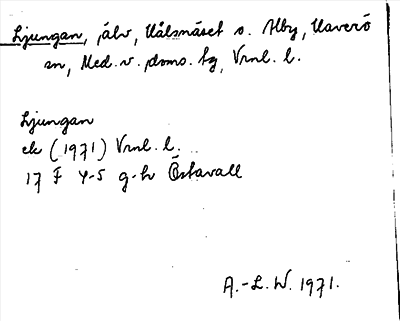 Ljungan, älv, Uålsnäset o. Alby, Haverö
sn, Med. v. doms. tg, Vrnl. l.
Ljungan
ek (1971) Vrnl. l.
17 F 4-5 g-h Östavall
A.-L. W. 1971.